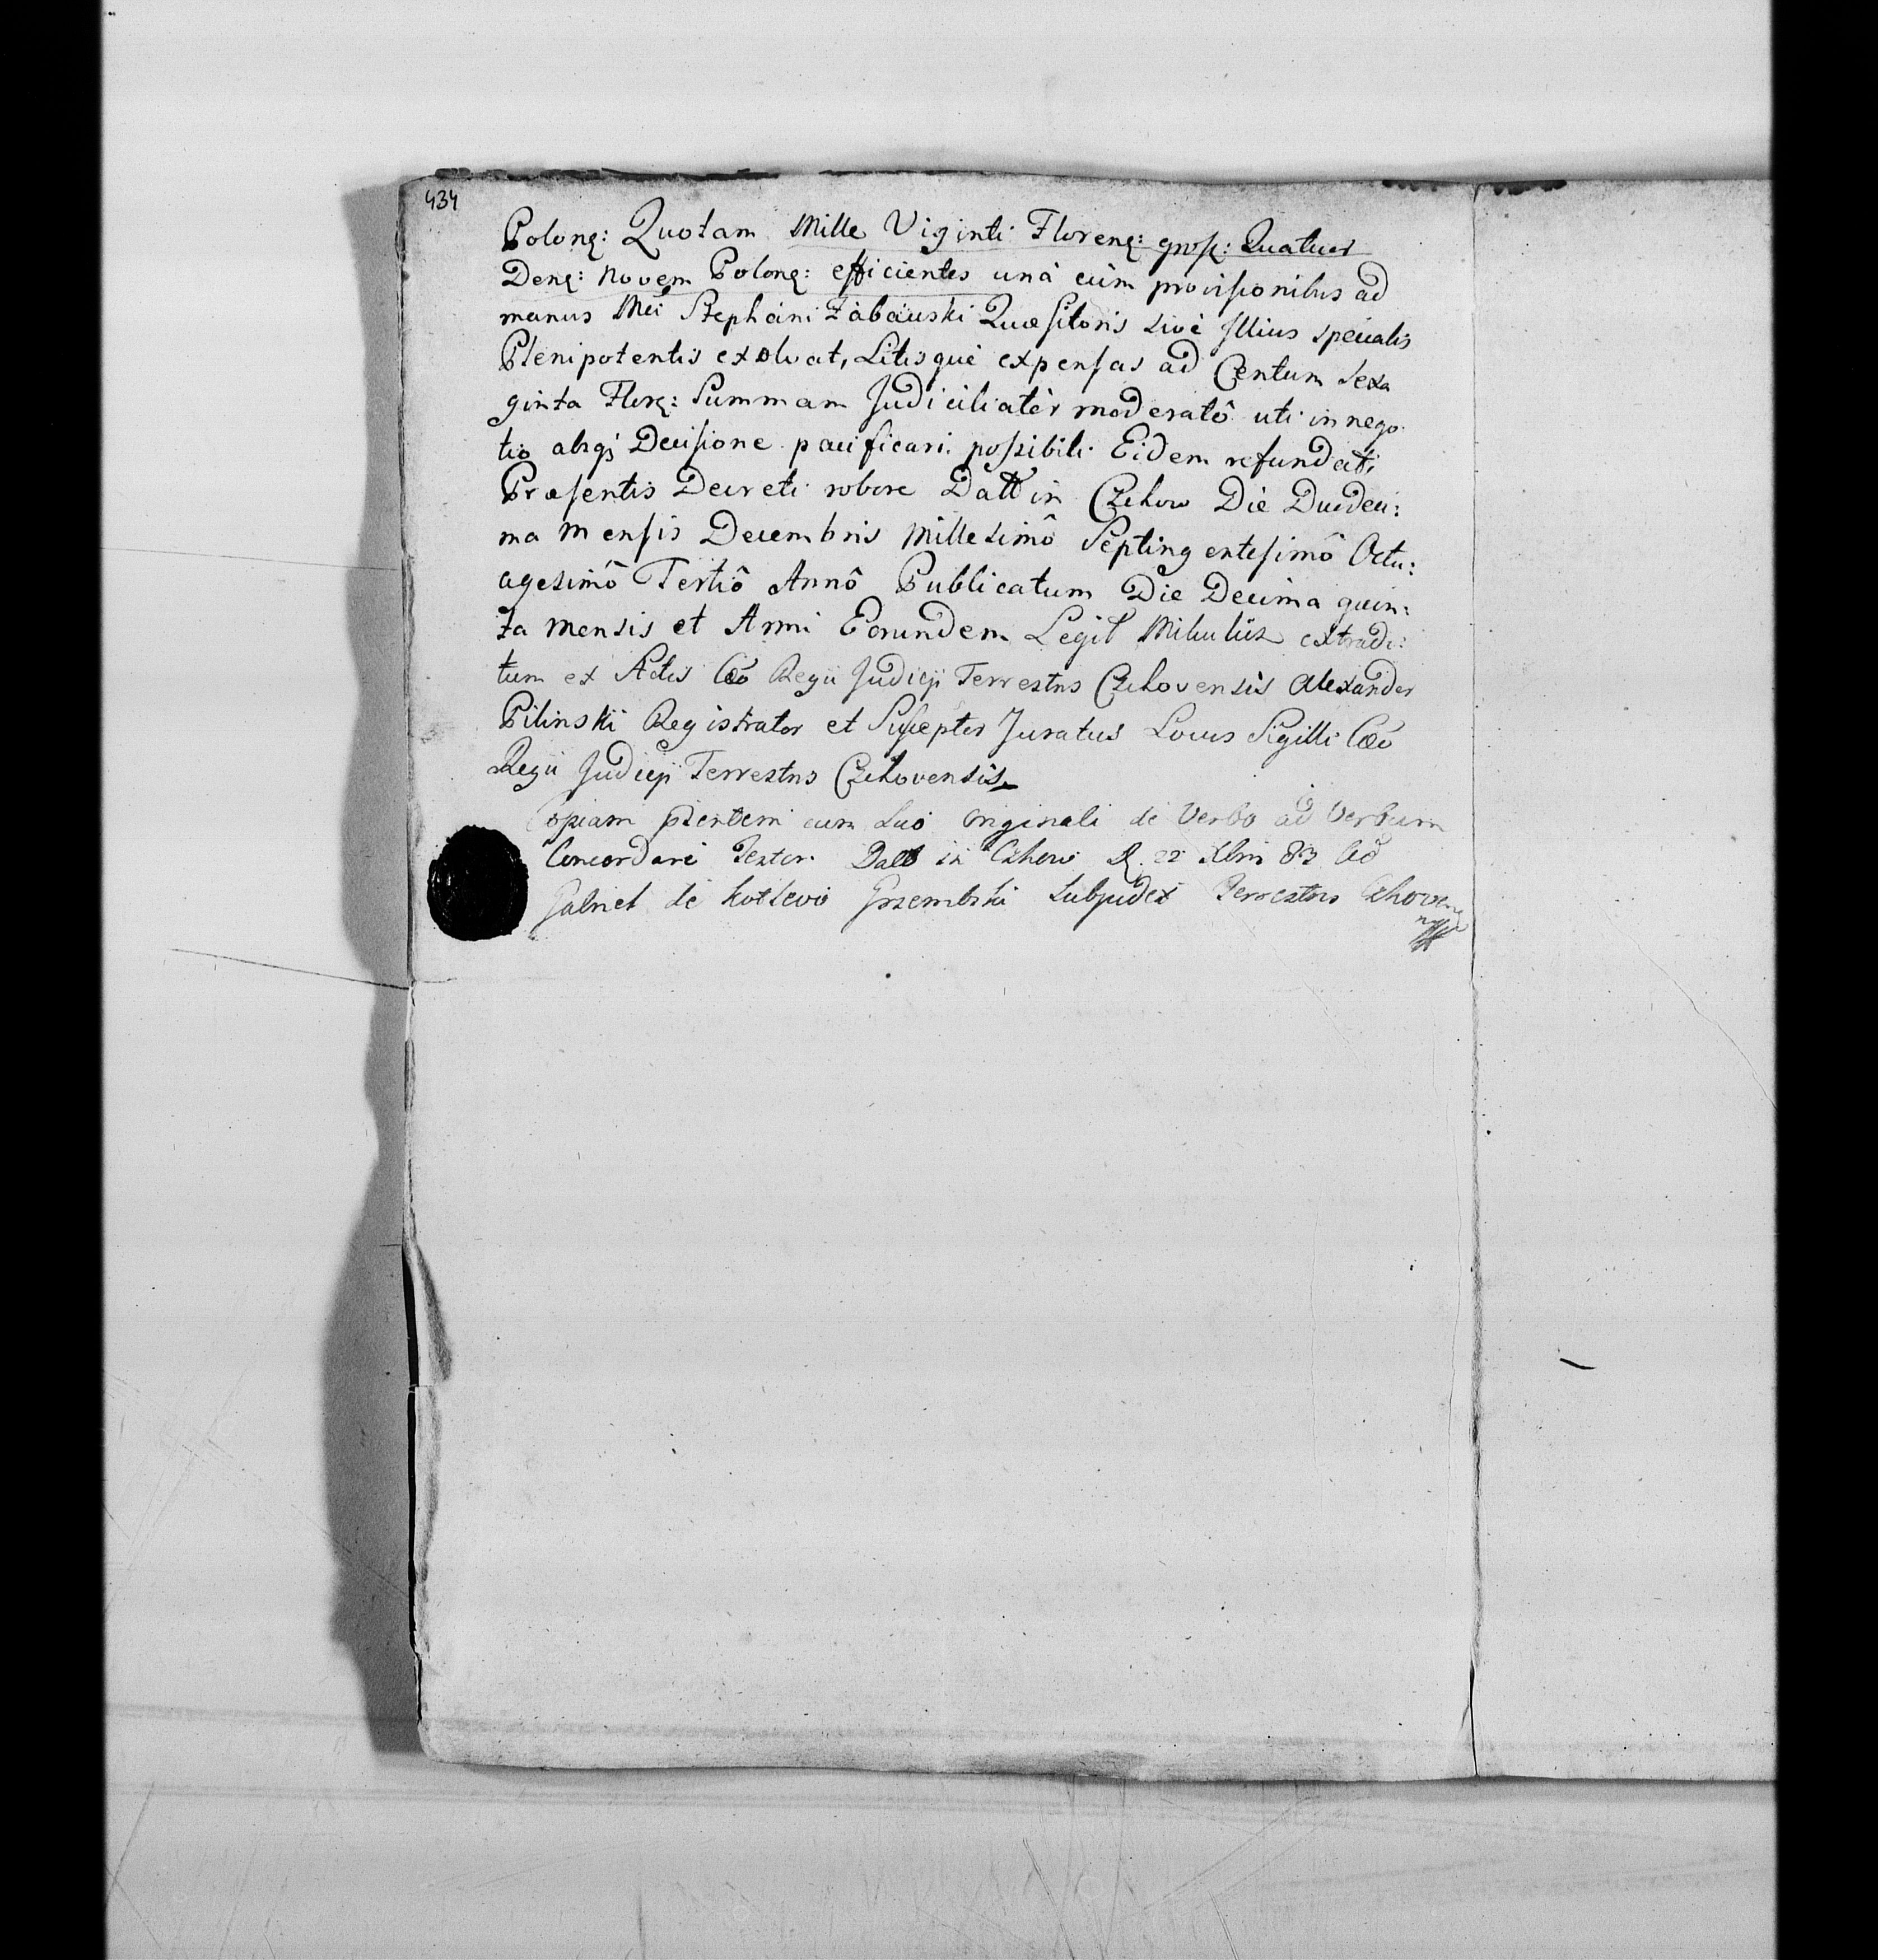 434
Polonę: Quotam Mille Viginti Florenę: groß: Quatuor
Denę: Novem Polonę: efficientes unà cùm provisionibus ad
manus Mei Stephani Zabauski Quæsitoris sivè Illius specialis
Plenipotentis exolvat, Litisquè expensas ad Centum sexa
ginta Flor: Summam Judicilialitèr moderatô uti in nego
tio absq; Decisione pacificari possibili Eidem refundat,
Præsentis Decreti robore Datt in Czchow Die Duodeci:
ma Mensis Decembris Millesimô Septingentesimô Octu:
agesimô Tertiô Annô Publicatum Die Decima quin:
ta mensis et Anni Eorundem Legit extradi:
tum ex Actis Cæo Regii Judicii Terrestris Czchovensis Alexander
Pilinski Registrator et Susceptor Juratus Locus Sigilli Cæo
Regii Judicii Terrestris Czchovensis
Copiam pzentem cum suo Originali de Verbo ad Verbum
Concordare Testor. Datt in Czhow D. 22 Xbris 83 Ao
Gabriel de Kotlewo Grzembski Subjudex Terrestris Czhoven